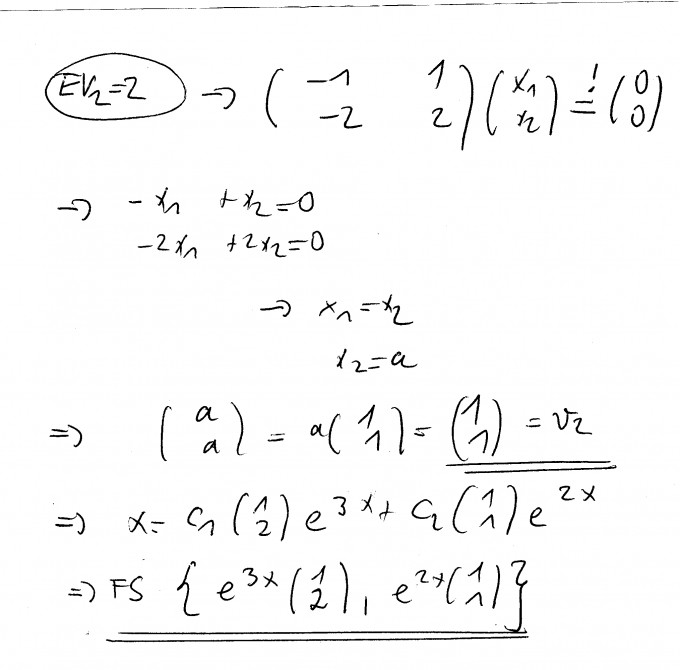 EV₂=2 → ( -1 1 ; -2 2 ) ( x₁ ; x₂ ) =! ( 0 ; 0 )
→ -x₁ +x₂=0
-2x₁ +2x₂=0
→ x₁=x₂
x₂=a
⇒ ( a ; a ) = a( 1 ; 1 ) = ( 1 ; 1 ) = v₂
⇒ x= c₁ ( 1 ; 2 ) e^3x + c₂ ( 1 ; 1 ) e^2x
⇒ FS { e^3x ( 1 ; 2 ), e^2x ( 1 ; 1 ) }